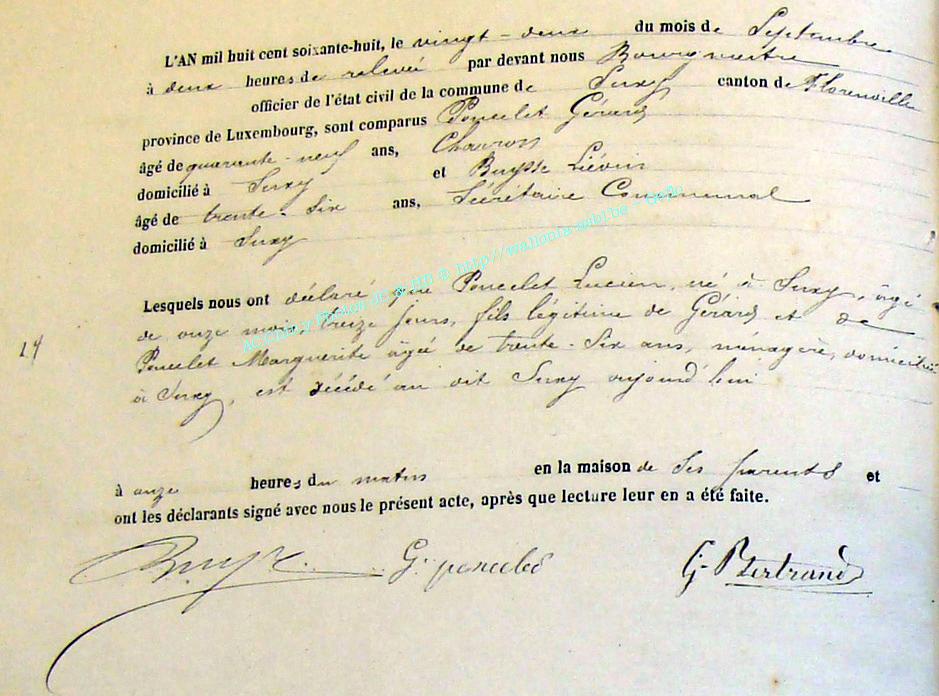 L'AN mil huit cent soixante-huit, le vingt-deux du mois de Septembre
à deux heures de relevée par devant nous Bourgmestre
officier de l'état civil de la commune de Suxy canton de Florenville
province de Luxembourg, sont comparus Poncelet Gérard
âgé de quarante-neuf ans, Charron
domicilié à Suxy et Buysse Liévin
âgé de trente-Six ans, Sécrétaire Communal
domicilié à Suxy
Lesquels nous ont déclaré que Poncelet Lucien, né à Suxy, âgé
de onze mois, treize jours, fils légitime de Gérard et de
24 Poncelet Marguerite âgée de trente-Six ans, ménagère, domiciliés
à Suxy, est décédé au dit Suxy aujourd'hui
à onze heures du matin en la maison de Ses parents et
ont les déclarants signé avec nous le présent acte, après que lecture leur en a été faite.
G. poncelet G. Bertrand